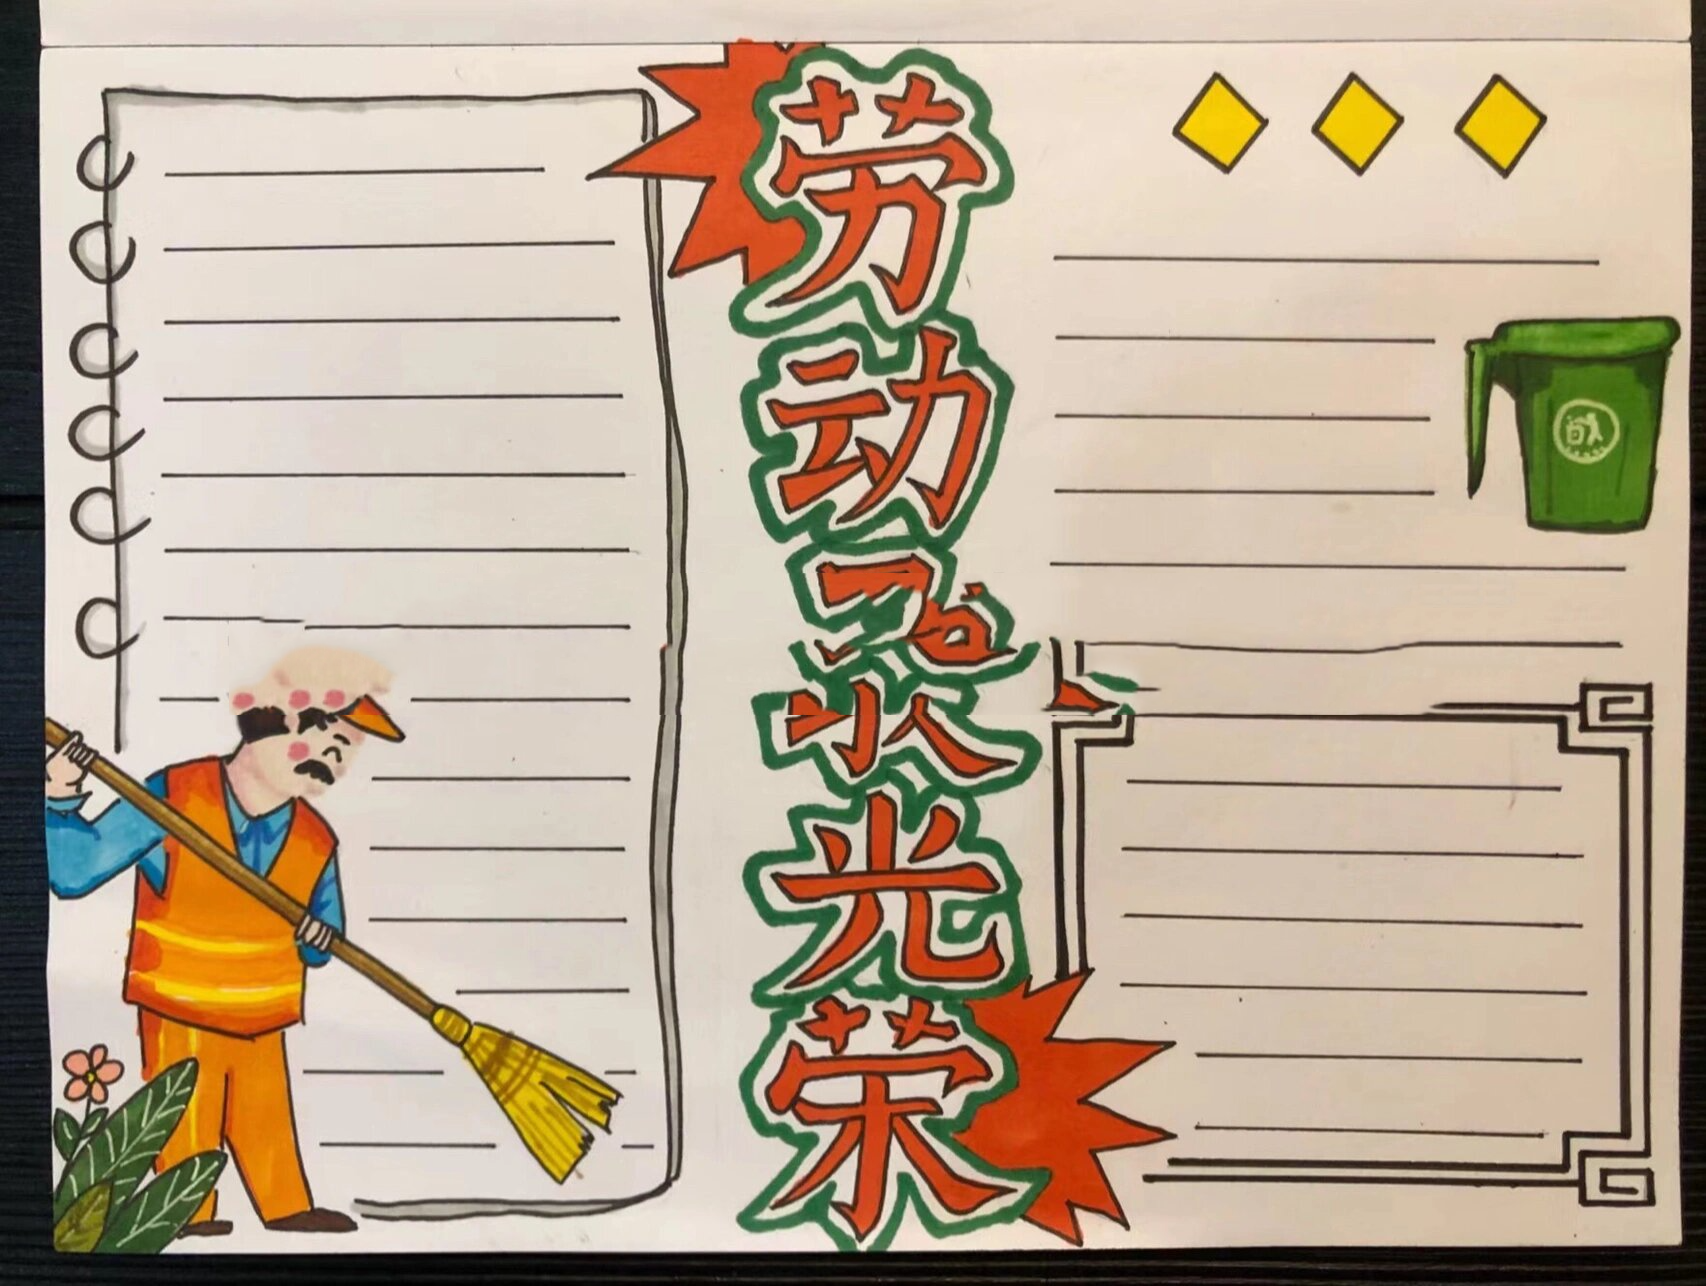 劳
动
光
荣